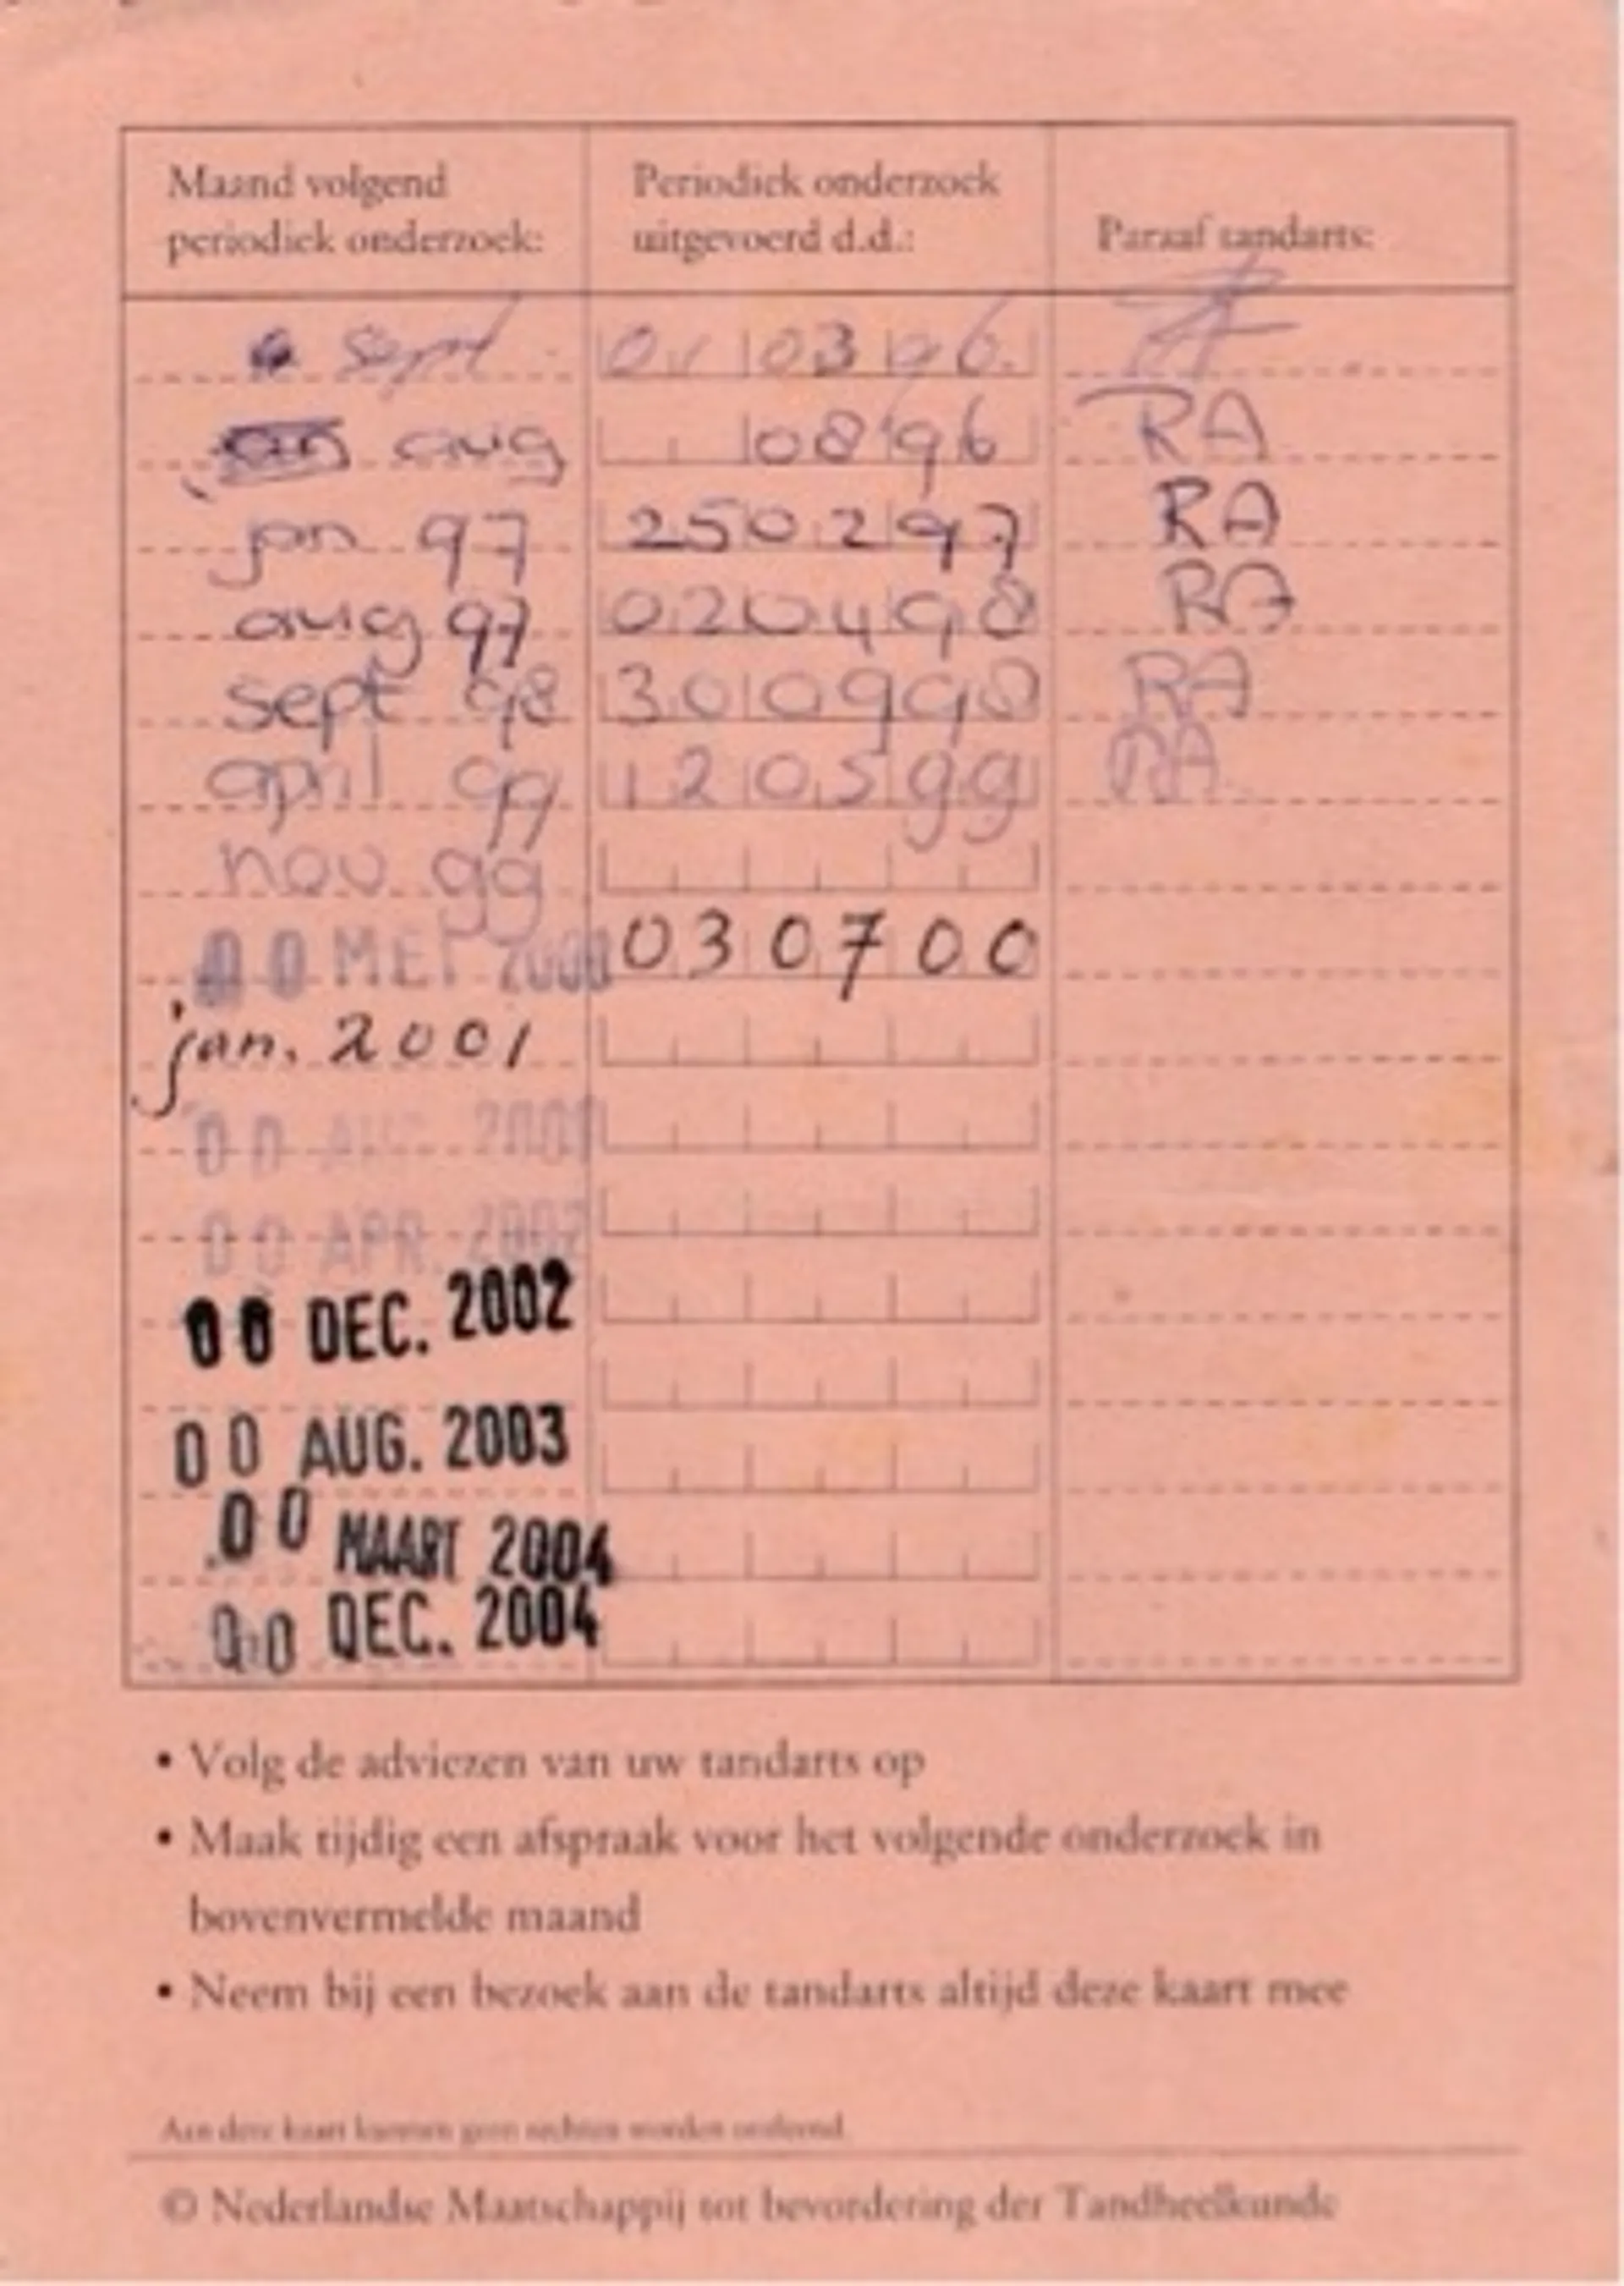 Maand volgend periodiek onderzoek:
Periodiek onderzoek uitgevoerd d.d.:
Paraaf tandarts:
sept 01 03 96
aug 08 96 RA
jan 97 25 02 97 RA
aug 97 02 04 98 RA
sept 98 30 09 98 RA
april 99 12 05 99 RA
nov 99
00 MEI 2000 03 07 00
jan. 2001
00 AUG. 2001
00 APR. 2002
00 DEC. 2002
00 AUG. 2003
00 MAART 2004
00 DEC. 2004
• Volg de adviezen van uw tandarts op
• Maak tijdig een afspraak voor het volgende onderzoek in
bovenvermelde maand
• Neem bij een bezoek aan de tandarts altijd deze kaart mee
Aan deze kaart kunnen geen rechten worden ontleend.
© Nederlandse Maatschappij tot bevordering der Tandheelkunde